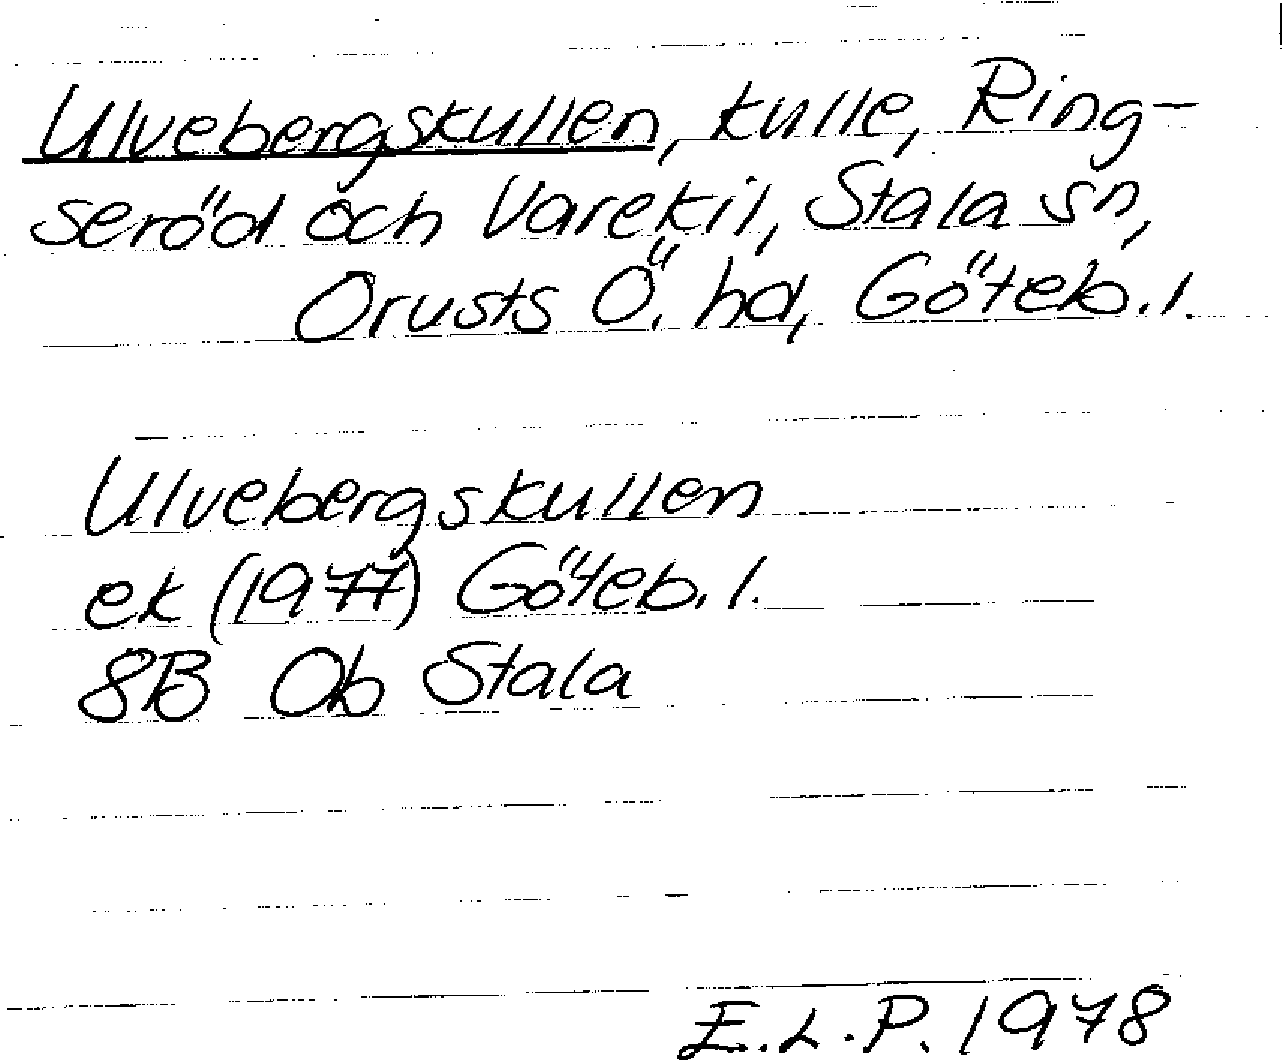 Ulvebergskullen, kulle, Ring-
seröd och Varekil, Stala sn,
Orusts Ö. hd, Göteb. l.
Ulvebergskullen
ek (1977) Göteb. l.
8B Ob Stala
E.L.P. 1978